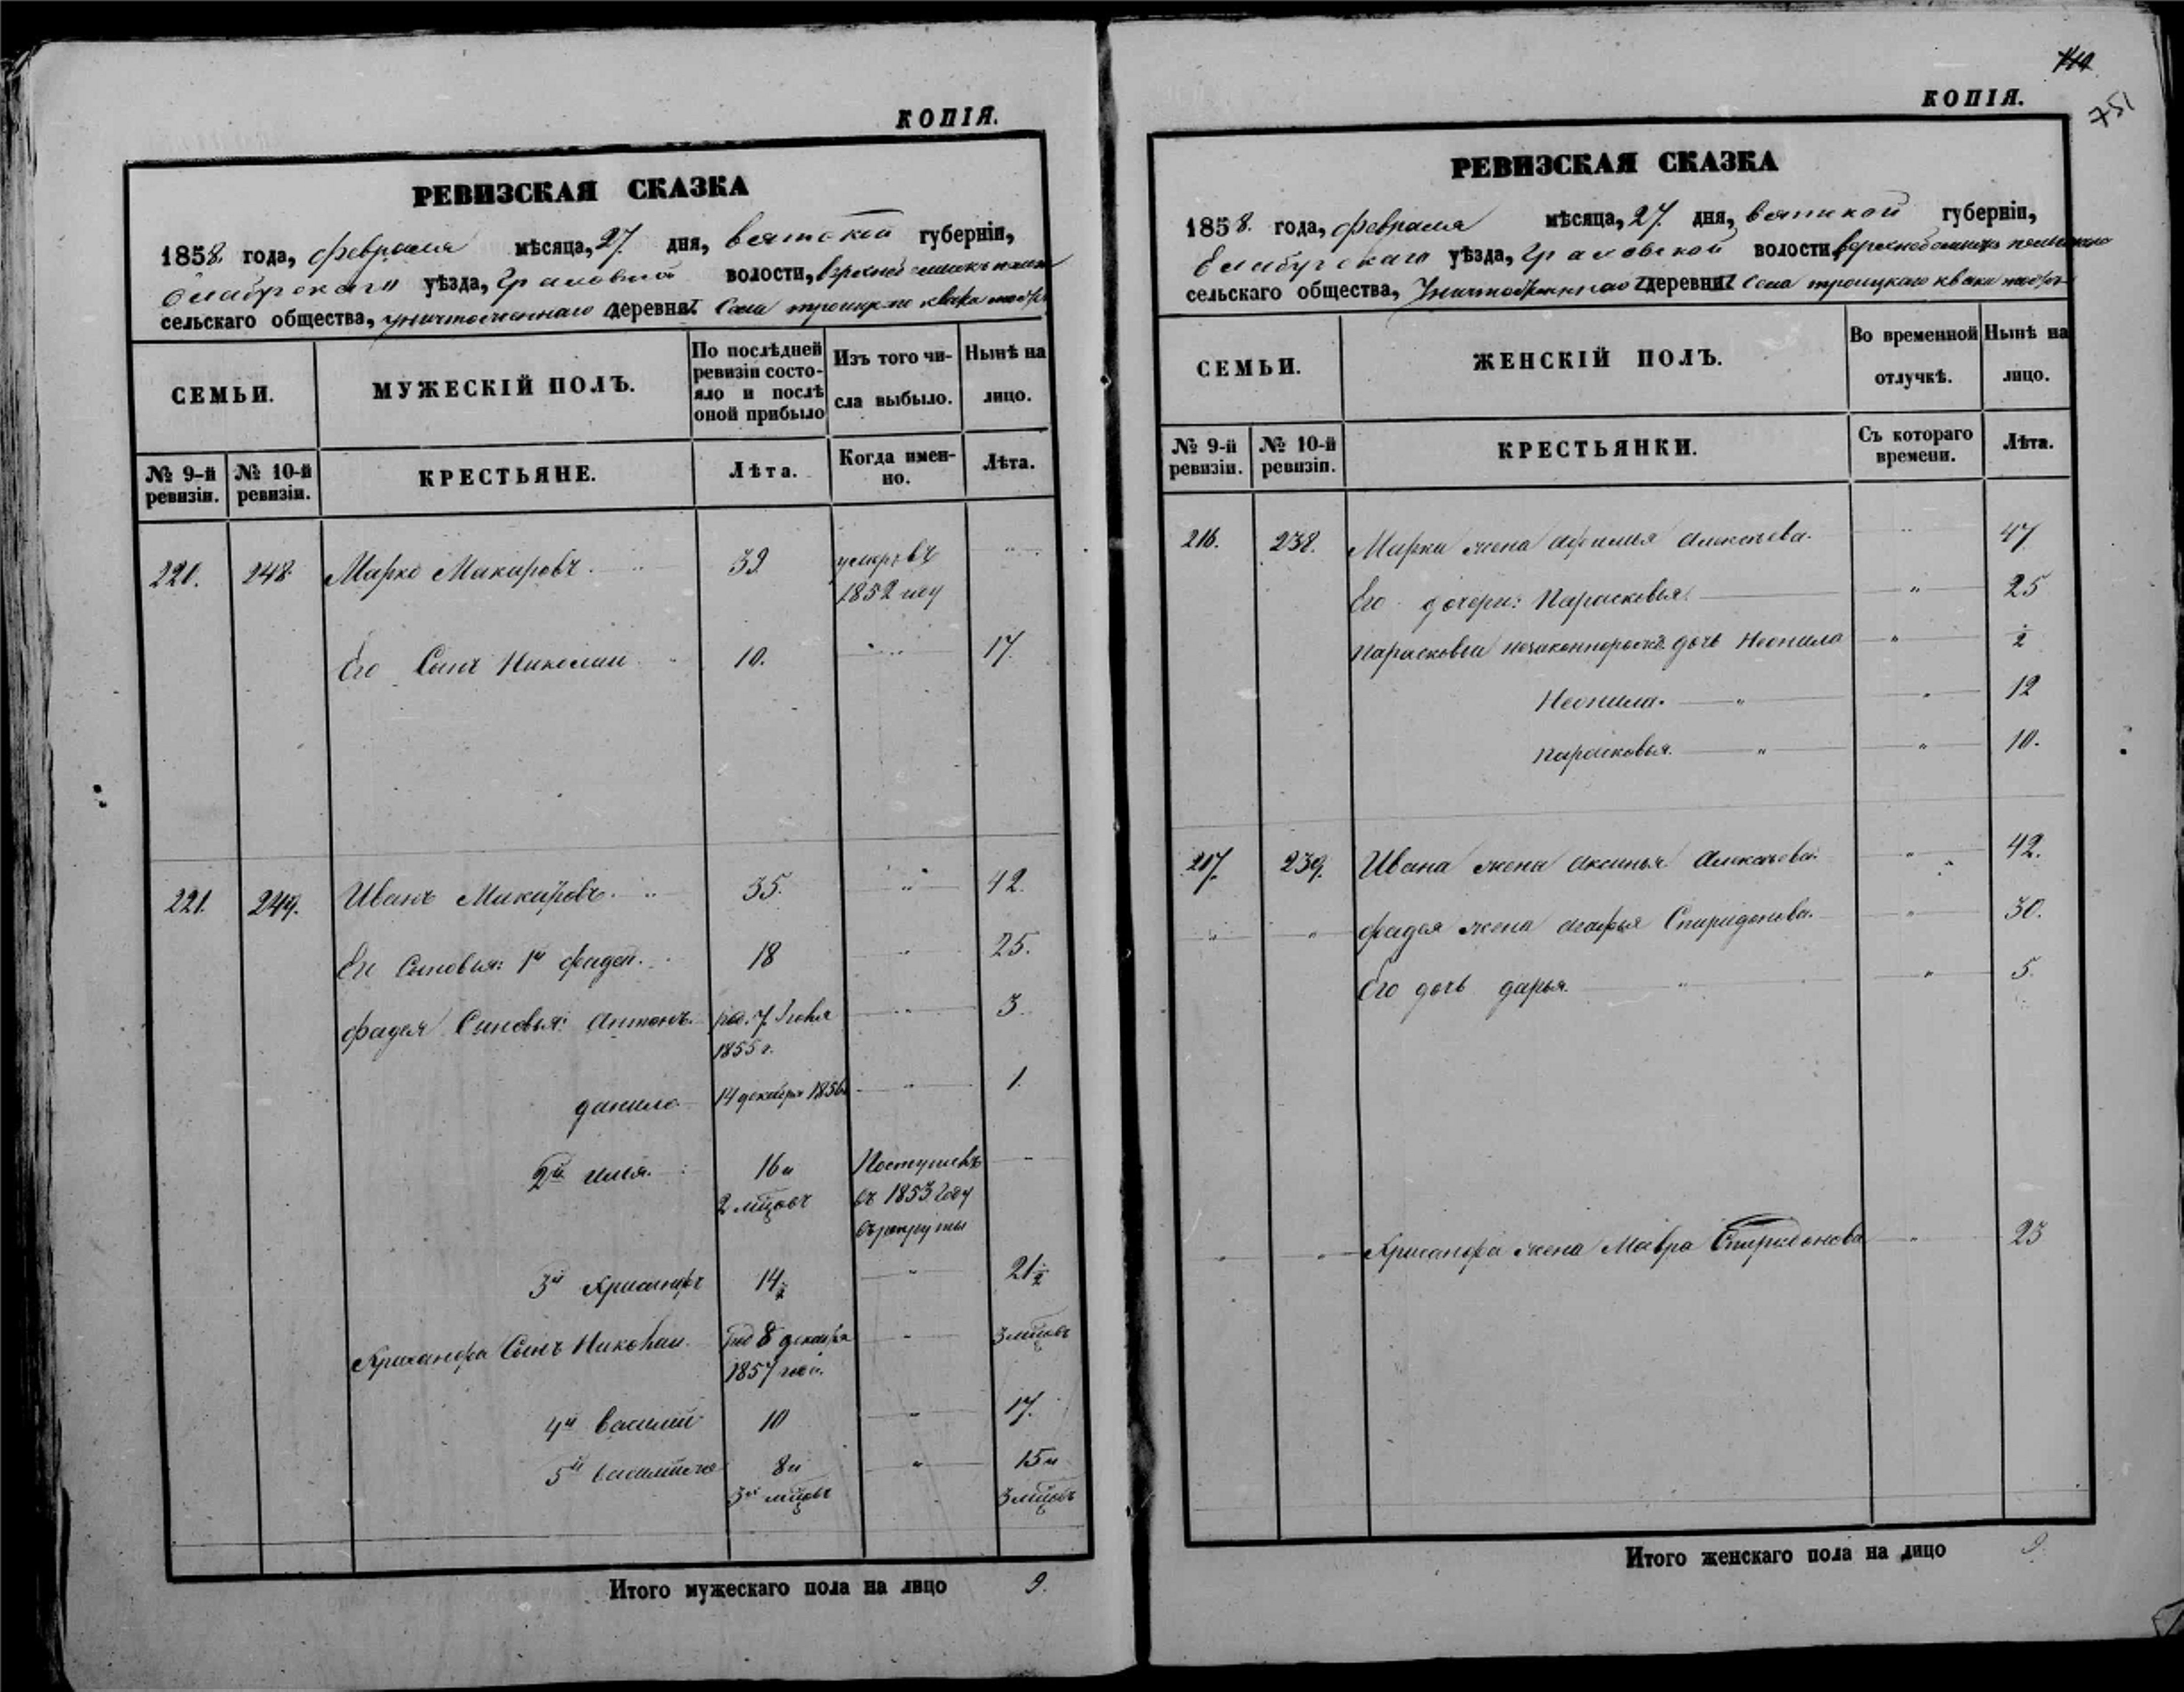 КОПІЯ.
РЕВИЗСКАЯ СКАЗКА
1858. года, февраля мѣсяца, 27. дня, вятской губерніи,
елабургскаго уѣзда, волости,
сельскаго общества, деревни Села троицкаго
СЕМЬИ.
МУЖЕСКІЙ ПОЛЪ.
По послѣдней
ревизіи состо-
яло и послѣ
оной прибыло
Изъ того чи-
сла выбыло.
Нынѣ на
лицо.
№ 9-й
ревизіи.
№ 10-й
ревизіи.
КРЕСТЬЯНЕ.
Лѣта.
Когда имен-
но.
Лѣта.
220. 248. Марко Макаровъ. 39 умеръ въ
1852 году
Его Сынъ Николаи 10. 17.
221. 249. Иванъ Макаровъ. 35. 42.
Его Сыновья: 1й фадей. 18 25.
фадея Сыновья: Антонъ. ро. 7. Іюня 3
1855 г.
данило 14 декабря 1856 1.
2й илья. 16 и Поступивъ
2 мцовъ въ 1853 году
въ рекруты
3й Хрисанфъ 14½ 21½
Хрисанфа Сынъ Николаи. род 8 декабря 3 мцовъ
1857 года.
4й василий 10 17.
5й 8 и 15 и
3 мцовъ 3 мцовъ
Итого мужескаго пола на лицо 9.
751
КОПІЯ.
РЕВИЗСКАЯ СКАЗКА
1858. года, февраля мѣсяца, 27. дня, вятской губерніи,
Елабургскаго уѣзда, волости,
сельскаго общества, деревни Села троицкаго
СЕМЬИ.
ЖЕНСКІЙ ПОЛЪ.
Во временной
отлучкѣ.
Нынѣ на
лицо.
№ 9-й
ревизіи.
№ 10-й
ревизіи.
КРЕСТЬЯНКИ.
Съ котораго
времени.
Лѣта.
216. 238. Марка жена Афимья Алексѣева. 47
Его дочери: Парасковья. 25
Парасковьи дочь Неонила ½
Неонила. 12
парасковья. 10.
217. 239. Ивана жена Аксинья Алексѣева. 42.
фадея жена Агафья Спиридонова. 30.
Его дочь дарья. 5.
Хрисанфа жена Мавра Спиридонова 23
Итого женскаго пола на лицо 9.